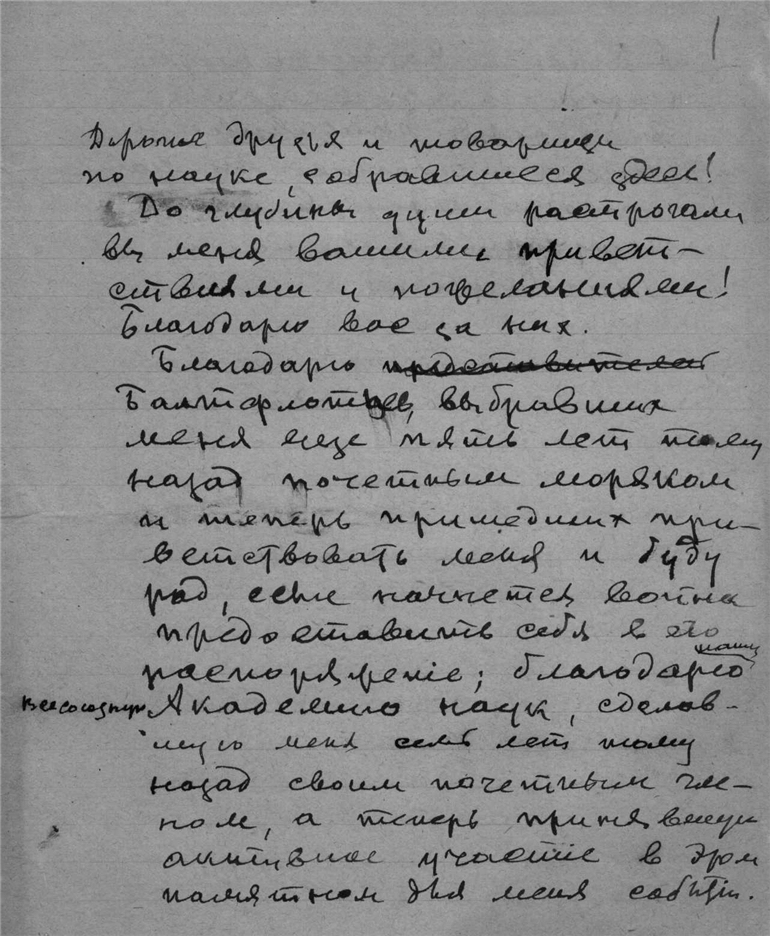 1
Дорогие друзья и товарищи
по науке, собравшиеся здесь!
До глубины души растрогали
вы меня вашими привет-
ствиями и пожеланиями!
Благодарю вас за них.
Благодарю представителей
Балтфлотцев, выбравших
меня еще пять лет тому
назад почетным моряком
и теперь пришедших при-
ветствовать меня и буду
рад, если начнется война
предоставить себя в его
распоряженіе; благодарю нашу
Всесоюзную Академию наук, сделав-
шую меня семь лет тому
назад своим почетным чле-
ном, а теперь принявшую
активное участіе в этом
памятном для меня событіи.